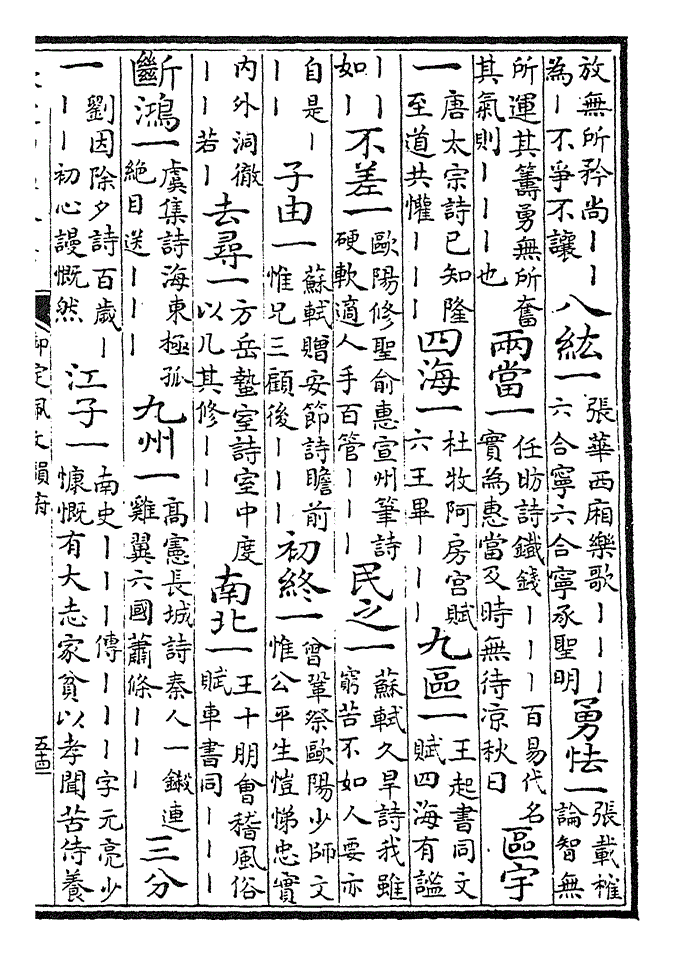 放無所矜尚丨丨
為丨不爭不讓
八紘一
張華西廂樂歌丨丨丨
六合寧六合寧承聖明
勇怯一
張載榷
論智無
所運其籌勇無所奮
其氣則丨丨丨也
兩當一
任昉詩鐵錢丨丨丨百易代名
實為惠當及時無待凉秋日
區宇
一
唐太宗詩已知隆
至道共懽丨丨丨
四海一
杜牧阿房宮賦
六王畢丨丨丨
九區一
王起書同文
賦四海有謐
丨丨
如丨丨
不差一
歐陽修聖俞惠宣州筆詩
硬軟適人手百管丨丨丨
民之一
蘇軾久旱詩我雖
窮苦不如人要亦
自是丨
丨丨
子由一
蘇軾贈安節詩瞻前
惟兄三顧後丨丨丨
初終一
曾鞏祭歐陽少師文
惟公平生愷悌忠實
內外洞徹
丨丨若丨
去尋一
方岳蟄室詩室中度
以几其修丨丨丨
南北一
王十朋會稽風俗
賦車書同丨丨丨
斷鴻一
虞集詩海東極孤
絶目送丨丨丨
九州一
高憲長城詩秦人一鍛連
雞翼六國蕭條丨丨丨
三分
一
劉因除夕詩百歲丨
丨丨初心謾慨然
江子一
南史丨丨丨傳丨丨丨字元亮少
慷慨有大志家貧以孝聞苦侍養
御定佩文韻府